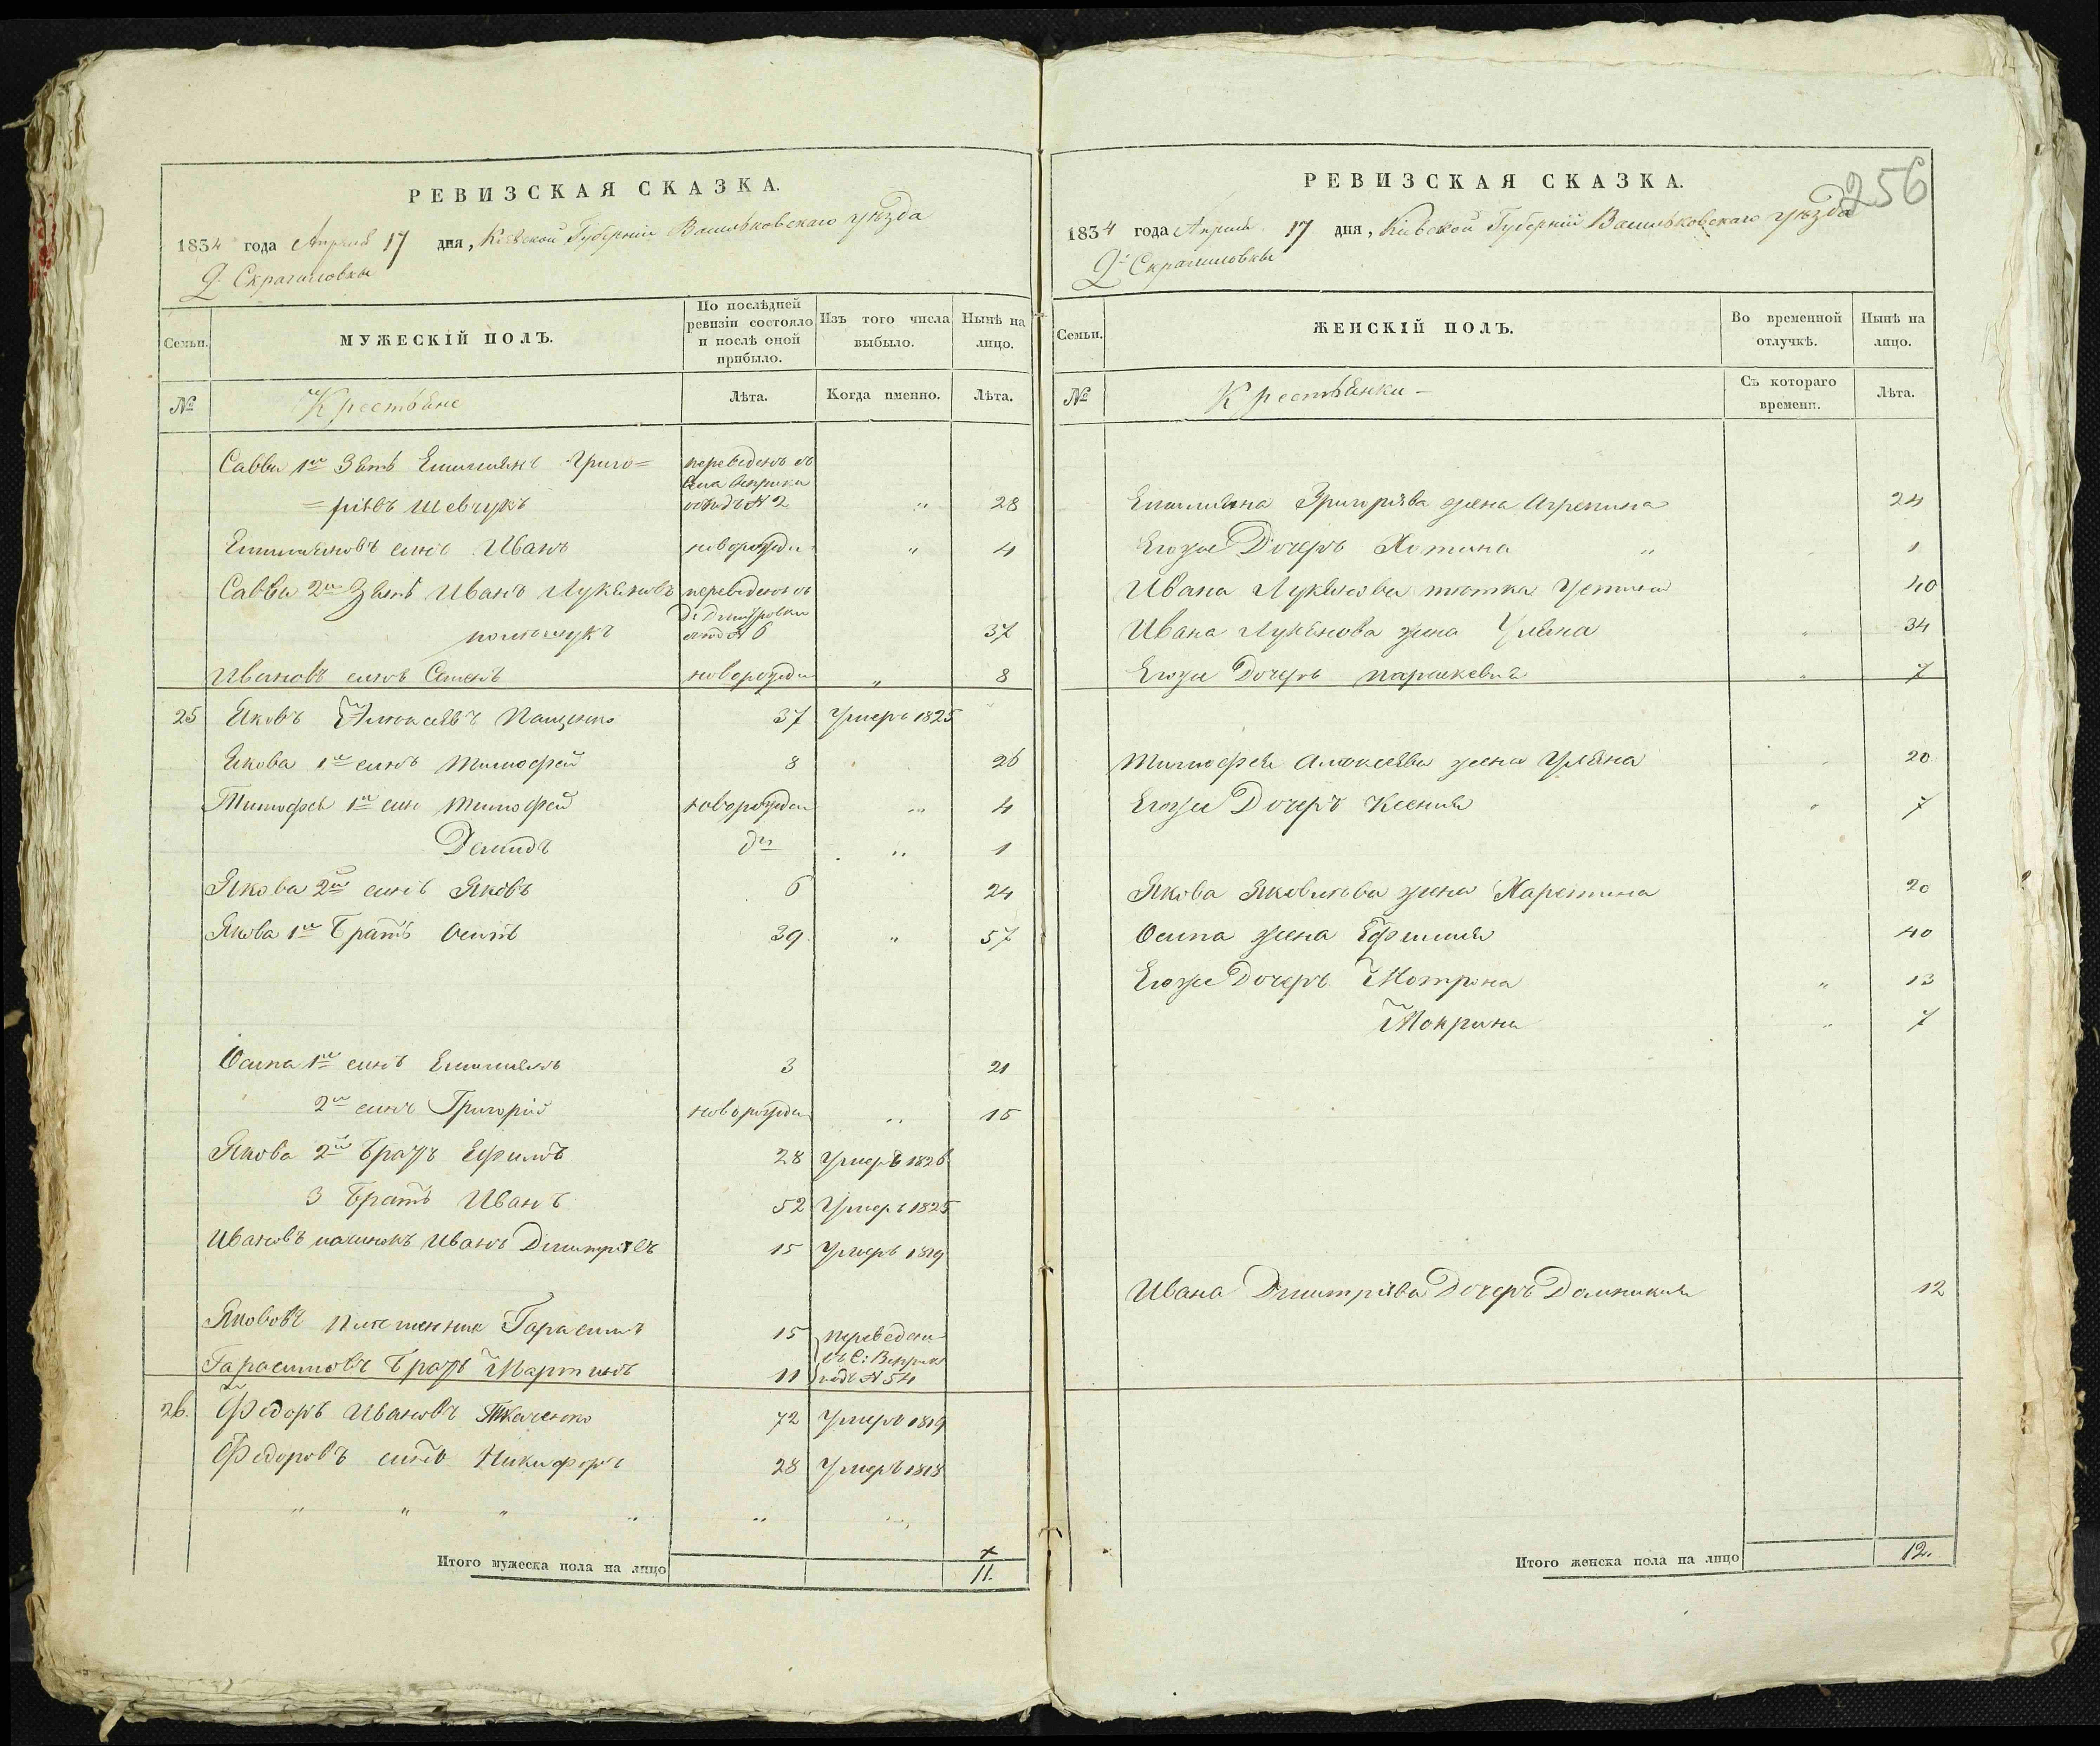 РЕВИЗСКАЯ СКАЗКА.
1834 года Апреля 17 дня, Кіевской Губерніи Васильковскаго уѣзда
Семьи.
МУЖЕСКІЙ ПОЛЪ.
По послѣдней ревизіи состояло и послѣ оной прибыло.
Изъ того числа выбыло.
Нынѣ на лицо.
№
Крестьяне
Лѣта.
Когда именно.
Лѣта.
Саввы 1й Зять Емилиянъ Григо= переведенъ съ
=рѣвъ Шевчукъ подъ N 2 " 28
Емилияновъ сынъ Иванъ новорожден " 4
Саввы 2й Зять Иванъ Лукяновъ переведенъ съ
N 6 37
Ивановъ сынъ Семенъ новорожден " 8
25 Яковъ Алексеевъ Пащенко 37 Умеръ 1825
Якова 1й сынъ Тимофей 8 26
Тимофея 1й сын Тимофей новорожден " 4
Демидъ до " 1
Якова 2й сынъ Яковъ 6 24
Якова 1й Братъ Осипъ 39 " 57
Осипа 1й сынъ Емилиянъ 3 21
2й сынъ Григорій новорожден " 15
Якова 2й братъ Ефимъ 28 Умеръ 1826
3 братъ Иванъ 52 Умеръ 1825
Ивановъ пасинокъ Иванъ Дмитріевъ 15 Умеръ 1819
Яковъ племенник Гарасимъ 15 переведены
въ С: Веприк
Гарасимовъ братъ Мартинъ 11 подъ N 54
26. Федоръ Ивановъ Ткаченко 72 Умеръ 1819
Федоровъ сынъ Никифоръ 28 Умеръ 1818
" " " " " "
Итого мужеска пола на лицо 11.
256
РЕВИЗСКАЯ СКАЗКА.
1834 года Апреля 17 дня, Кіевской Губерніи Васильковскаго уѣзда
Семьи.
ЖЕНСКІЙ ПОЛЪ.
Во временной отлучкѣ.
Нынѣ на лицо.
№
Крестьянки
Съ котораго времени.
Лѣта.
Емилияна Григорѣва жена Агрепина 24
Егоже Дочерь Хотина " 1
Ивана Лукянова тютка Устиния 40
Ивана Лукянова жена Уляна " 34
Егоже Дочерь Параскевия " 7
Тимофея Алексеева жена Уляна 20
Егоже Дочеръ Ксения " 7
Якова Яковлева жена Харетина 20
Осипа жена Ефимия 40
Егоже Дочеръ Мотрона " 13
Мокрина " 7
Ивана Дмитріева Дочеръ Домникия 12
Итого женска пола на лицо 12.